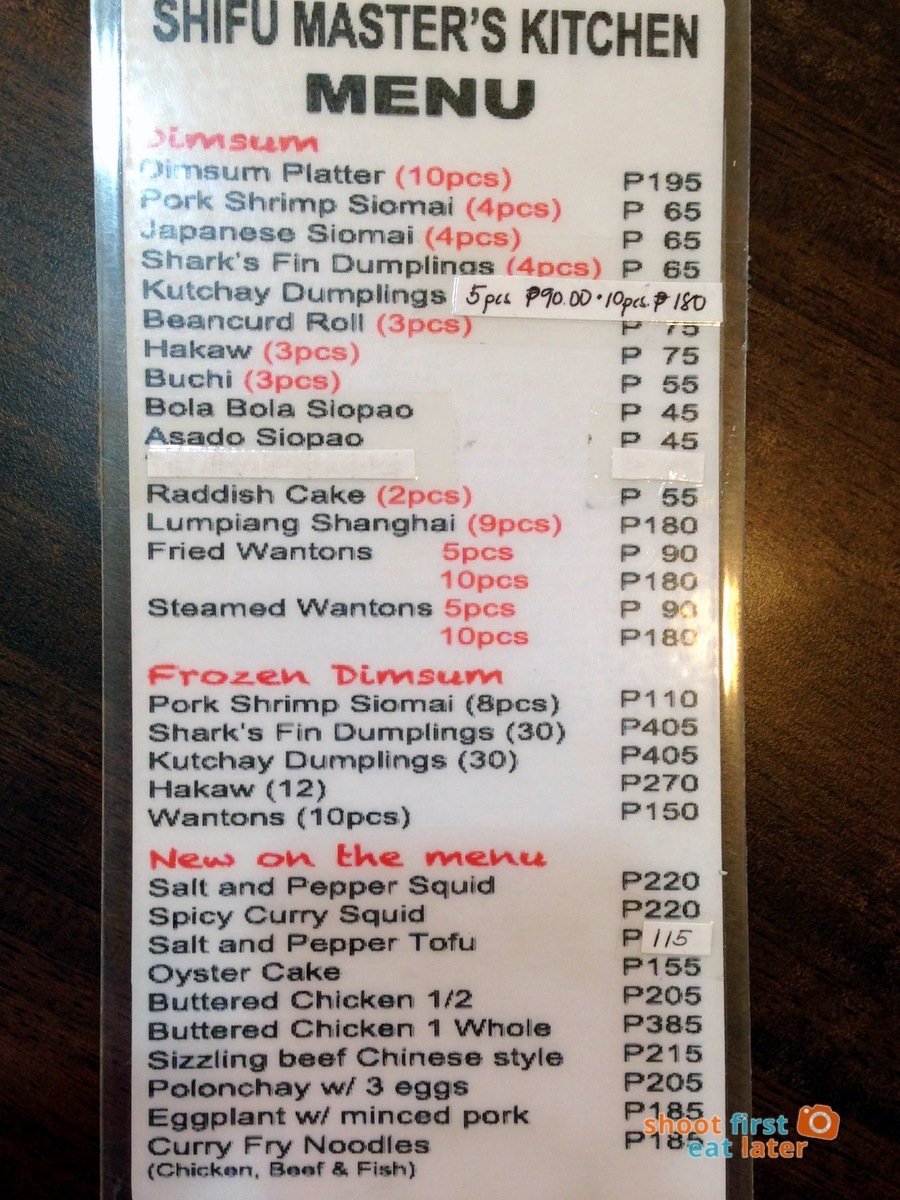 SHIFU MASTER'S KITCHEN
MENU
Dimsum
Dimsum Platter (10pcs) P195
Pork Shrimp Siomai (4pcs) P 65
Japanese Siomai (4pcs) P 65
Shark's Fin Dumplings (4pcs) P 65
Kutchay Dumplings 5pcs ₱90.00 • 10pcs. ₱180
Beancurd Roll (3pcs) P 75
Hakaw (3pcs) P 75
Buchi (3pcs) P 55
Bola Bola Siopao P 45
Asado Siopao P 45
Raddish Cake (2pcs) P 55
Lumpiang Shanghai (9pcs) P180
Fried Wantons 5pcs P 90
10pcs P180
Steamed Wantons 5pcs P 90
10pcs P180
Frozen Dimsum
Pork Shrimp Siomai (8pcs) P110
Shark's Fin Dumplings (30) P405
Kutchay Dumplings (30) P405
Hakaw (12) P270
Wantons (10pcs) P150
New on the menu
Salt and Pepper Squid P220
Spicy Curry Squid P220
Salt and Pepper Tofu P 115
Oyster Cake P155
Buttered Chicken 1/2 P205
Buttered Chicken 1 Whole P385
Sizzling beef Chinese style P215
Polonchay w/ 3 eggs P205
Eggplant w/ minced pork P185
Curry Fry Noodles P185
(Chicken, Beef & Fish)
shoot first
eat later